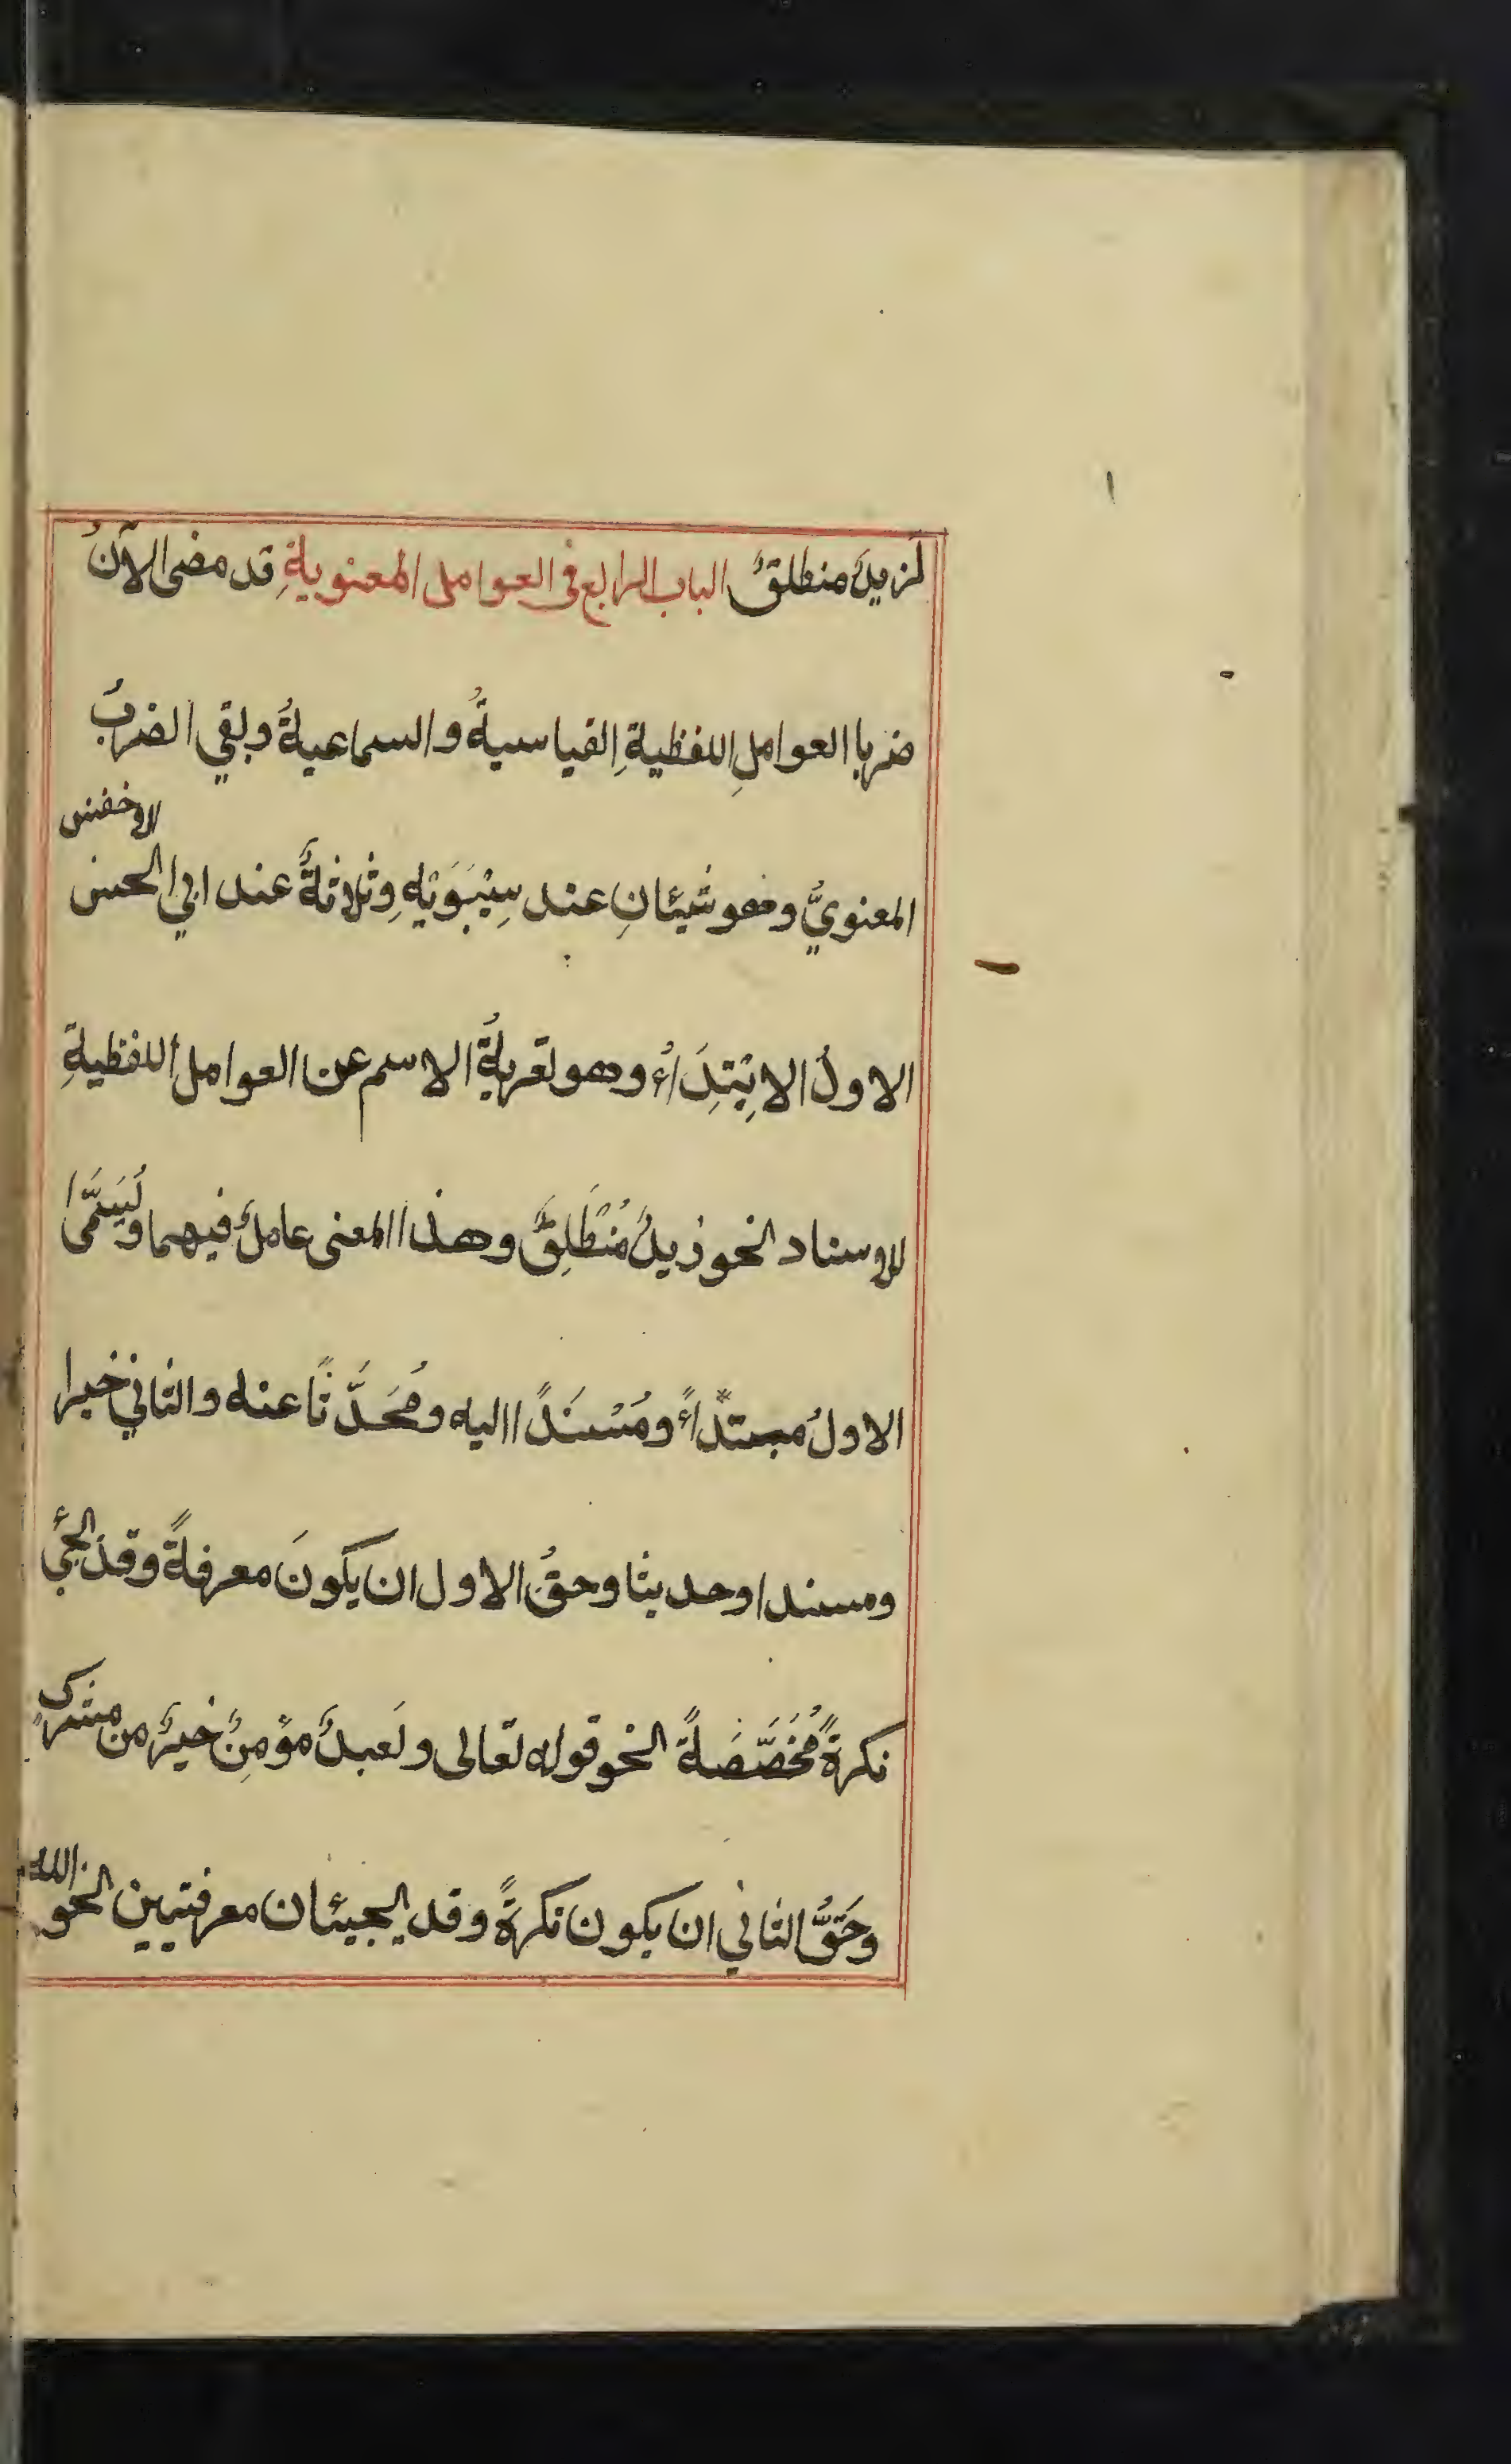 لزيدٌ منطلقٌ الباب الرابع فى العوامل المعنويةِ قد مضى الآنُ
ضربا العواملِ اللفظيةِ القياسيةُ والسماعيةُ وبقي الضربُ
المعنويُّ وهو شيئانِ عند سِيْبَوَيْهِ وثلاثةٌ عند ابي الحسن الاخفش
الاولُ الاِبْتِدَاءُ وهو تعريةُ الاسم عن العوامل اللفظيةِ
للاسناد نحو زيدٌ مُنْطَلِقٌ وهذا المعنى عاملٌ فيهما ويُسَمَّى
الاولُ مبتدًاءً ومُسْنَدًا اليه ومُحَدَّثًا عنه والثاني خبرا
ومسندا وحديثا وحقُ الاول ان يكونَ معرفةً وقد يجئُ
نكرةً مُخَصَّصَةً نحو قوله تعالى ولَعبدٌ مؤمِنٌ خيرٌ من مشركٍ
وحَقُّ الثاني ان يكون نكرةً وقد يجيئان معرفتيين نحو الله